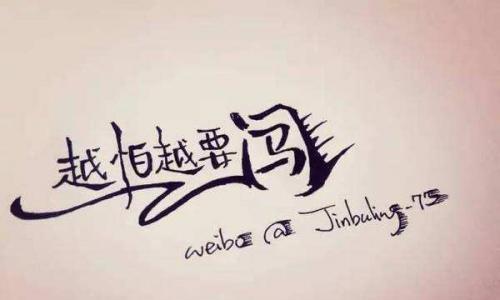 越怕越要闯
weibo @ Jinbuling-73